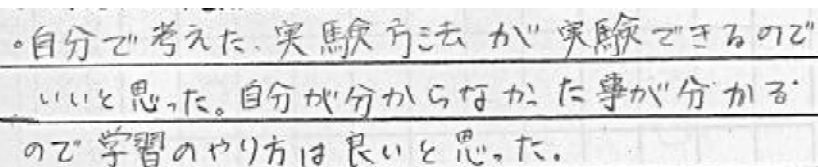 ・自分で考えた、実験方法が実験できるので
いいと思った。自分が分からなかった事が分かる
ので学習のやり方は良いと思った。